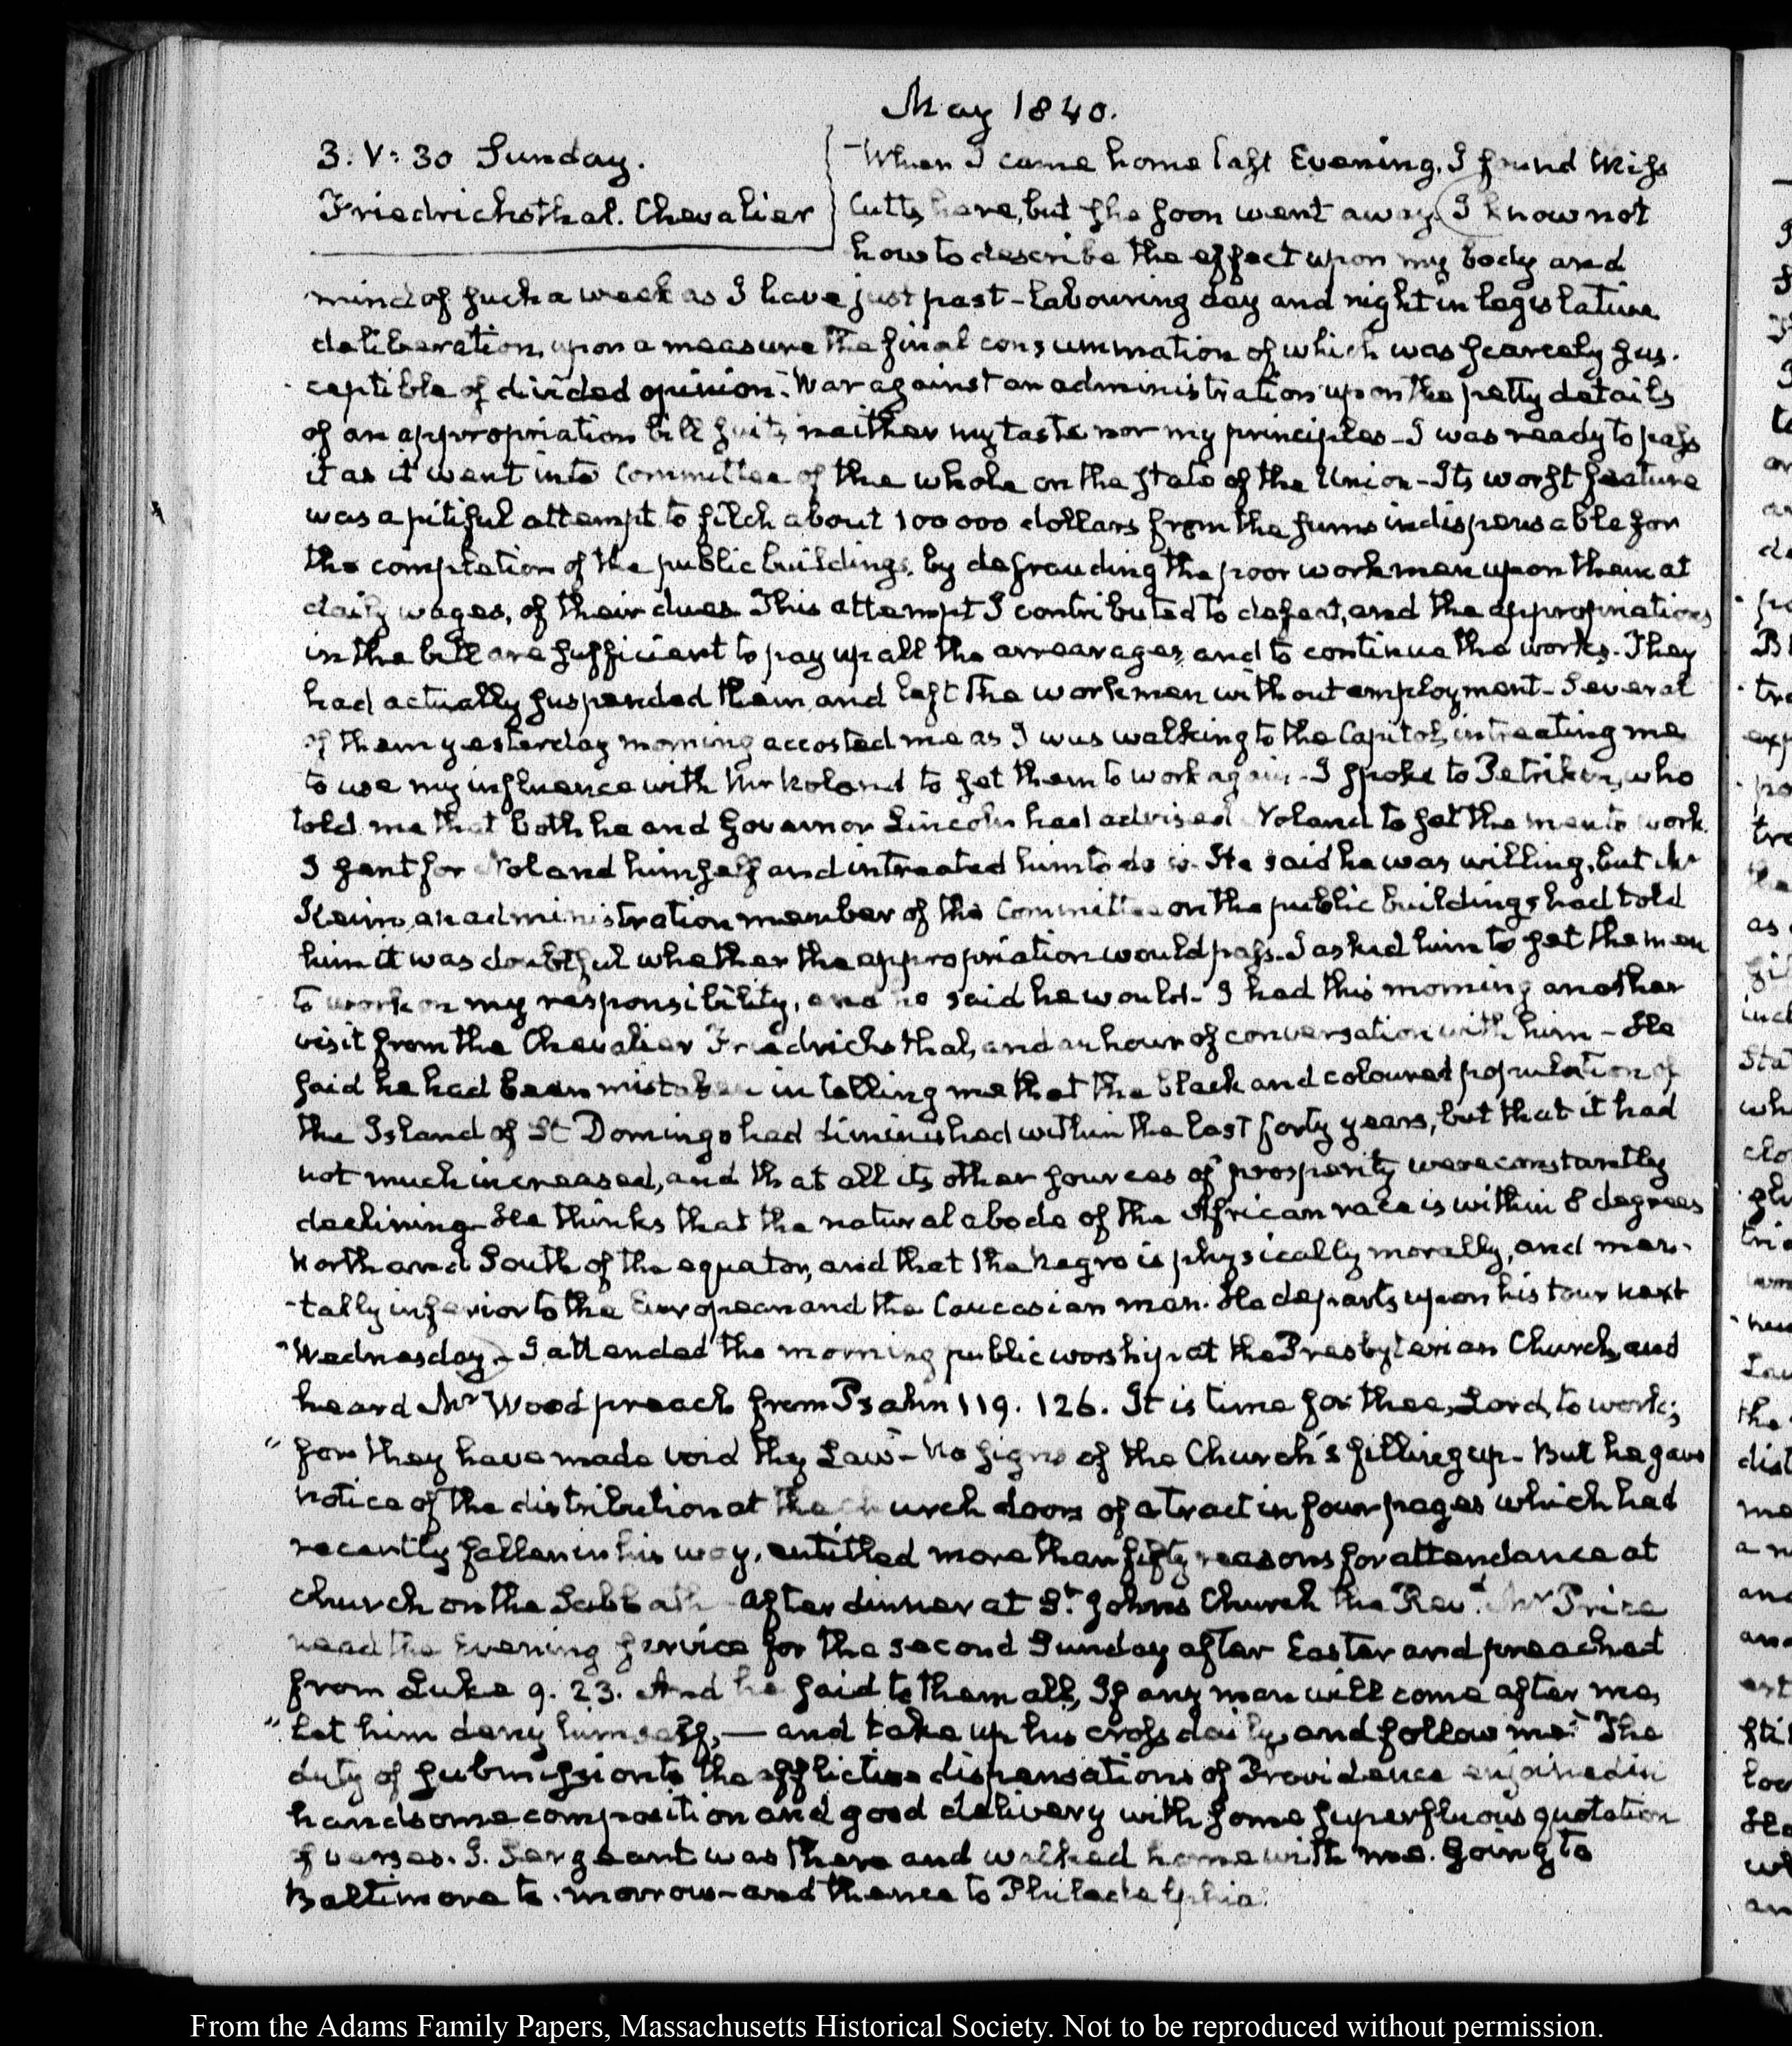 May 1840.
3. V: 30 Sunday.
Friedrichsthal. Chevalier
When I came home last Evening, I found Miss
Cutts here, but she soon went away. I know not
how to describe the effect upon my body and
mind of such a week as I have just past – labouring day and night in legislative
deliberation, upon a measure the final consummation of which was scarcely sus-
ceptible of divided opinion. War against an administration upon the petty details
of an appropriation bill suits neither my taste nor my principles – I was ready to pass
it as it went into Committee of the whole on the state of the Union – Its worst feature
was a pitiful attempt to filch about 100 000 dollars from the sums indispensable for
the completion of the public buildings, by defrauding the poor workmen upon them at
daily wages, of their dues. This attempt I contributed to defeat, and the appropriations
in the bill are sufficient to pay up all the arrearages, and to continue the works. They
had actually suspended them, and left the workmen without employment – Several
of them yesterday morning accosted me as I was walking to the Capitol, intreating me
to use my influence with Mr Noland to set them to work again. I spoke to Petriken, who
told me that both he and Governor Lincoln had advised Noland to set the men to work.
I sent for Noland himself and intreated him to do so. He said he was willing, but Mr
Keim, an administration member of the Committee on the public buildings had told
him it was doubtful whether the appropriation would pass. I asked him to set the men
to work on my responsibility, and he said he would – I had this morning another
visit from the Chevalier Friedrichsthal, and an hour of conversation with him – He
said he had been mistaken in telling me that the black and coloured population of
the Island of St Domingo had diminished within the last forty years, but that it had
not much increased, and that all its other sources of prosperity were constantly
declining – He thinks that the natural abode of the African race is within 8 degrees
North and South of the equator, and that the Negro is physically morally, and men-
-tally inferior to the European and the Caucasian man. He departs upon his tour next
Wednesday – I attended the morning public worship at the Presbyterian Church, and
heard Mr Wood preach from Psalm 119. 126. It is time for thee, Lord, to work;
" for they have made void thy Law" – No signs of the Church's filling up – But he gave
notice of the distribution at the church doors of a tract in four pages which had
recently fallen in his way, entitled more than fifty reasons for attendance at
church on the Sabbath after dinner at St. Johns Church the Revd. Mr Price
read the Evening service for the second Sunday after Easter and preached
from Luke 9. 23. And he said to them all, If any man will come after me,
" let him deny himself, — and take up his cross daily, and follow me." The
duty of submission to the afflictive dispensations of Providence enjoined in
handsome composition and good delivery with some superfluous quotation
of verses. J. Sergeant was there and walked home with me. Going to
Baltimore to-morrow – and thence to Philadelphia.
From the Adams Family Papers, Massachusetts Historical Society. Not to be reproduced without permission.